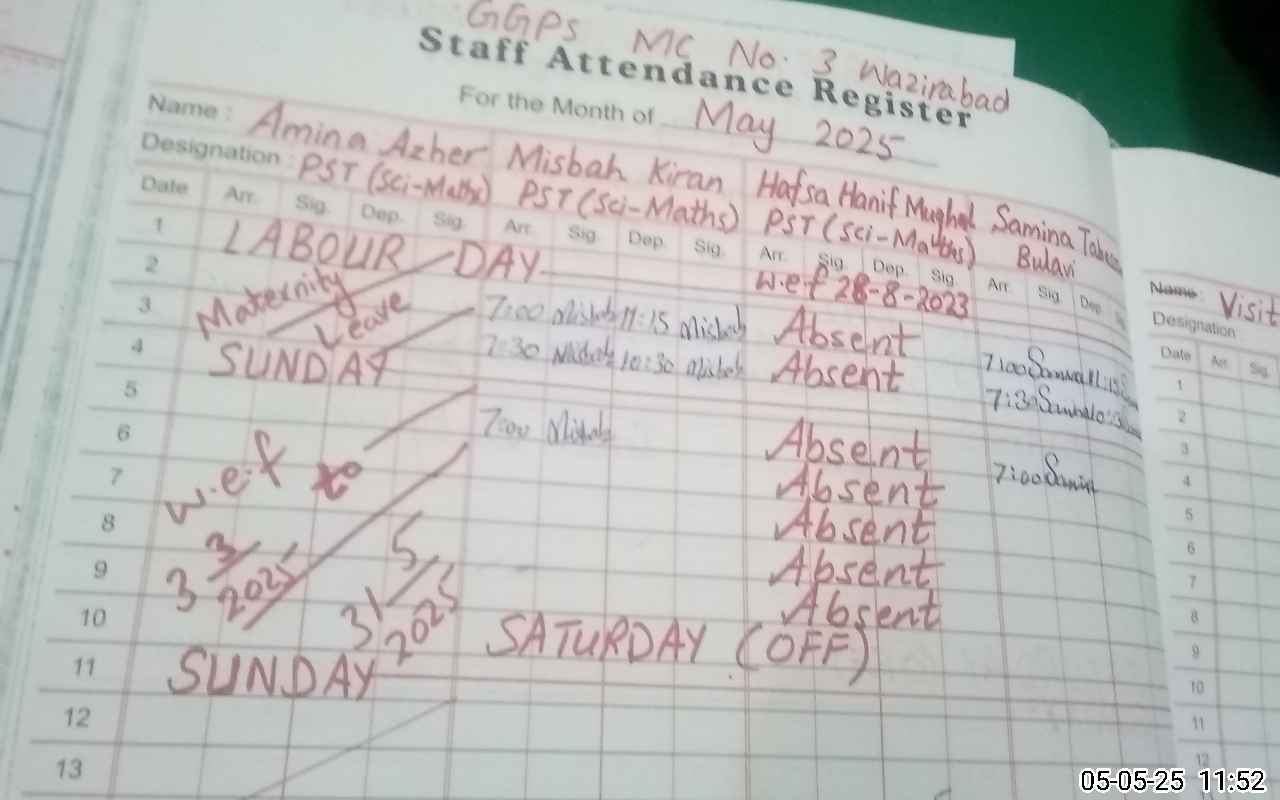 GGPS MC No. 3 Wazirabad
Staff Attendance Register
For the Month of May 2025
Name : Amina Azher Misbah Kiran Hafsa Hanif Mughal Samina
Designation : PST (Sci-Maths) PST (Sci-Maths) PST (Sci-Maths) Bulavi
Date Arr. Sig. Dep. Sig. Arr. Sig. Dep. Sig. Arr. Sig. Dep. Sig. Arr. Sig. Dep.
1 LABOUR DAY w.e.f 28-8-2023
2 Maternity 7:00 Misbah 11:15 Misbah Absent 7:00
3 Leave 7:30 Misbah 10:30 Misbah Absent 7:30
4 SUNDAY
5 7:00 Misbah Absent 7:00
6 w.e.f to Absent
7 Absent
8 3/3/2025 31/5/2025 Absent
9 Absent
10 SATURDAY (OFF)
11 SUNDAY
12
13
Name: Visit
Designation
Date Arr. Sig.
1
2
3
4
5
6
7
8
9
10
11
12
05-05-25 11:52